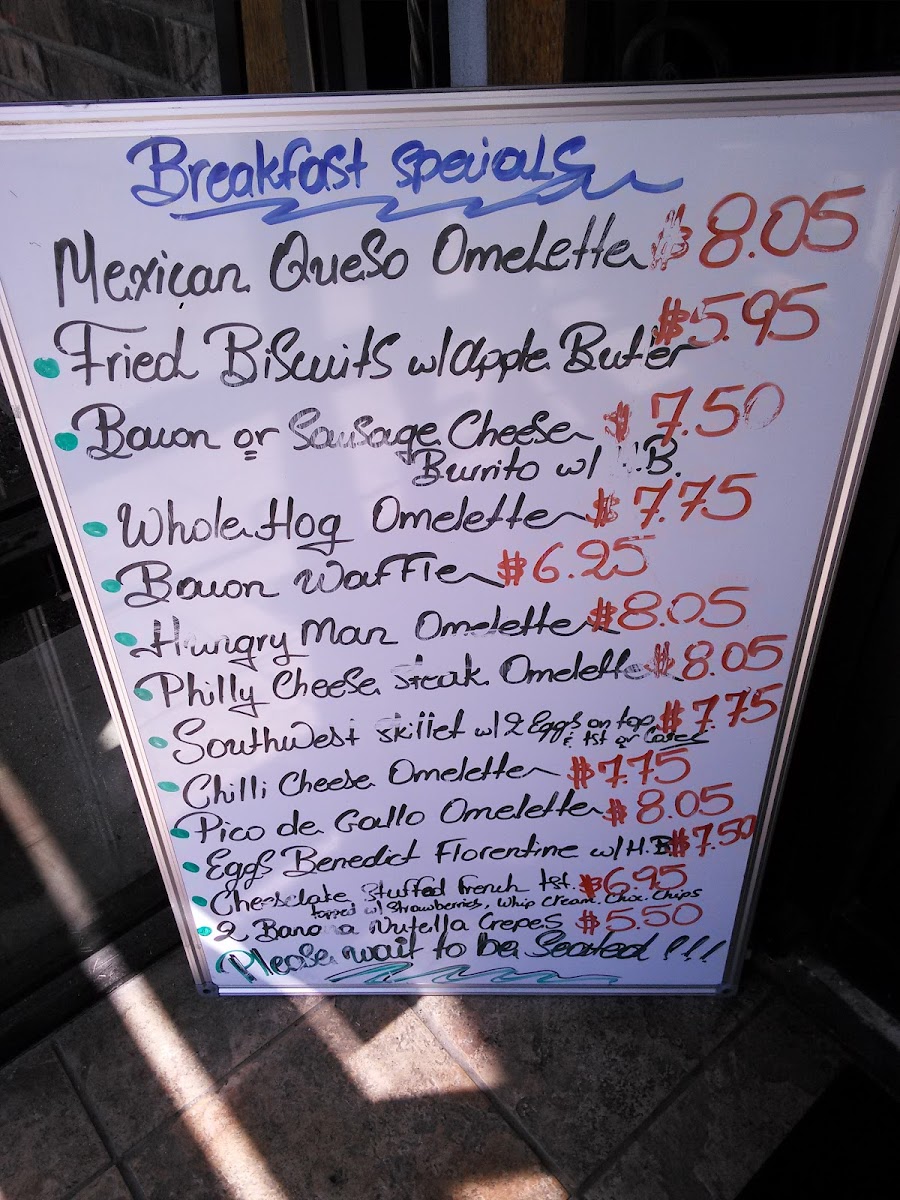 Breakfast specials
Mexican Queso Omelette $8.05
Fried Biscuits w/apple Butter $5.95
Bacon or Sausage Cheese $7.50
Burrito w/ H.B.
Whole Hog Omelette $7.75
Bacon Waffle $6.25
Hungry Man Omelette $8.05
Philly Cheese Steak Omelette $8.05
Southwest Skillet w/2 Eggs on top $7.75
& tst or Cakes
Chilli Cheese Omelette $7.75
Pico de Gallo Omelette $8.05
Eggs Benedict Florentine w/H.B $7.50
Cheeselake Stuffed french tst. $6.95
topped w/ Strawberries, Whip Cream, Choc. Chips
2 Banana Nutella Crepes $5.50
Please wait to be Seated !!!